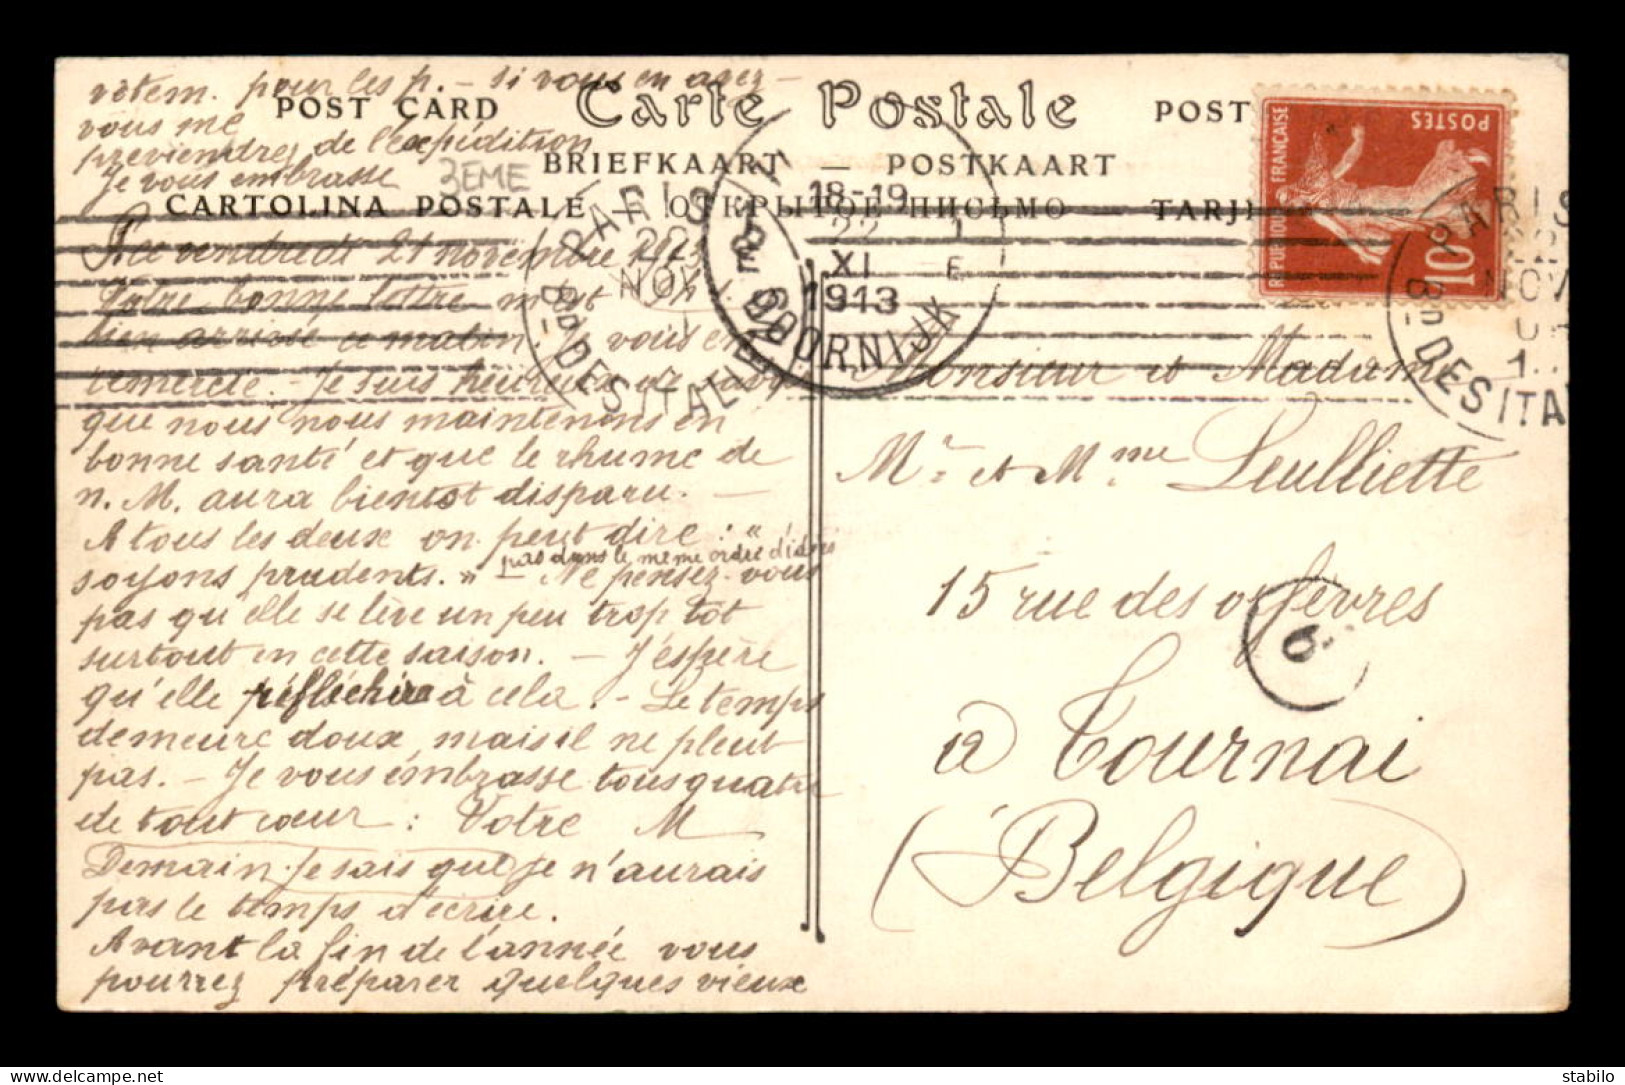 vêtem. pour les p. – si vous en avez –
POST CARD Carte Postale POST
vous me
previendrez de l'expédition
BRIEFKAART — POSTKAART
Je vous embrasse
3EME
CARTOLINA POSTALE — ОТКРЫТОЕ ПИСЬМО — TARJ
RÉPUBLIQUE FRANÇAISE
POSTES
10
PARIS
22
NOV
Bd DES ITALIENS
18-19
22
XI
1913
E
DOORNIJK
PARIS
NOV
Bd DES ITA
ce vendredi 21 novembre 1913
Votre bonne lettre m'est
bien arrivée ce matin. Je vous en
remercie. – Je suis heureuse de
que nous nous maintenons en
bonne santé et que le rhume de
n. M. aura bientôt disparu. —
A tous les deux on peut dire : "
pas dans le même ordre d'idées
soyons prudents." – Ne pensez-vous
pas qu'elle se lève un peu trop tôt
surtout en cette saison. – J'espère
qu'elle réfléchira à cela. – Le temps
demeure doux, mais il ne pleut
pas. – Je vous embrasse tous quatre
de tout cœur : Votre M
Demain je sais que je n'aurais
pas le temps d'écrire.
Avant la fin de l'année vous
pourrez préparer quelques vieux
Monsieur et Madame
Mr et Mme Leulliette
15 rue des orfèvres
6
à Tournai
(Belgique)
stabilo